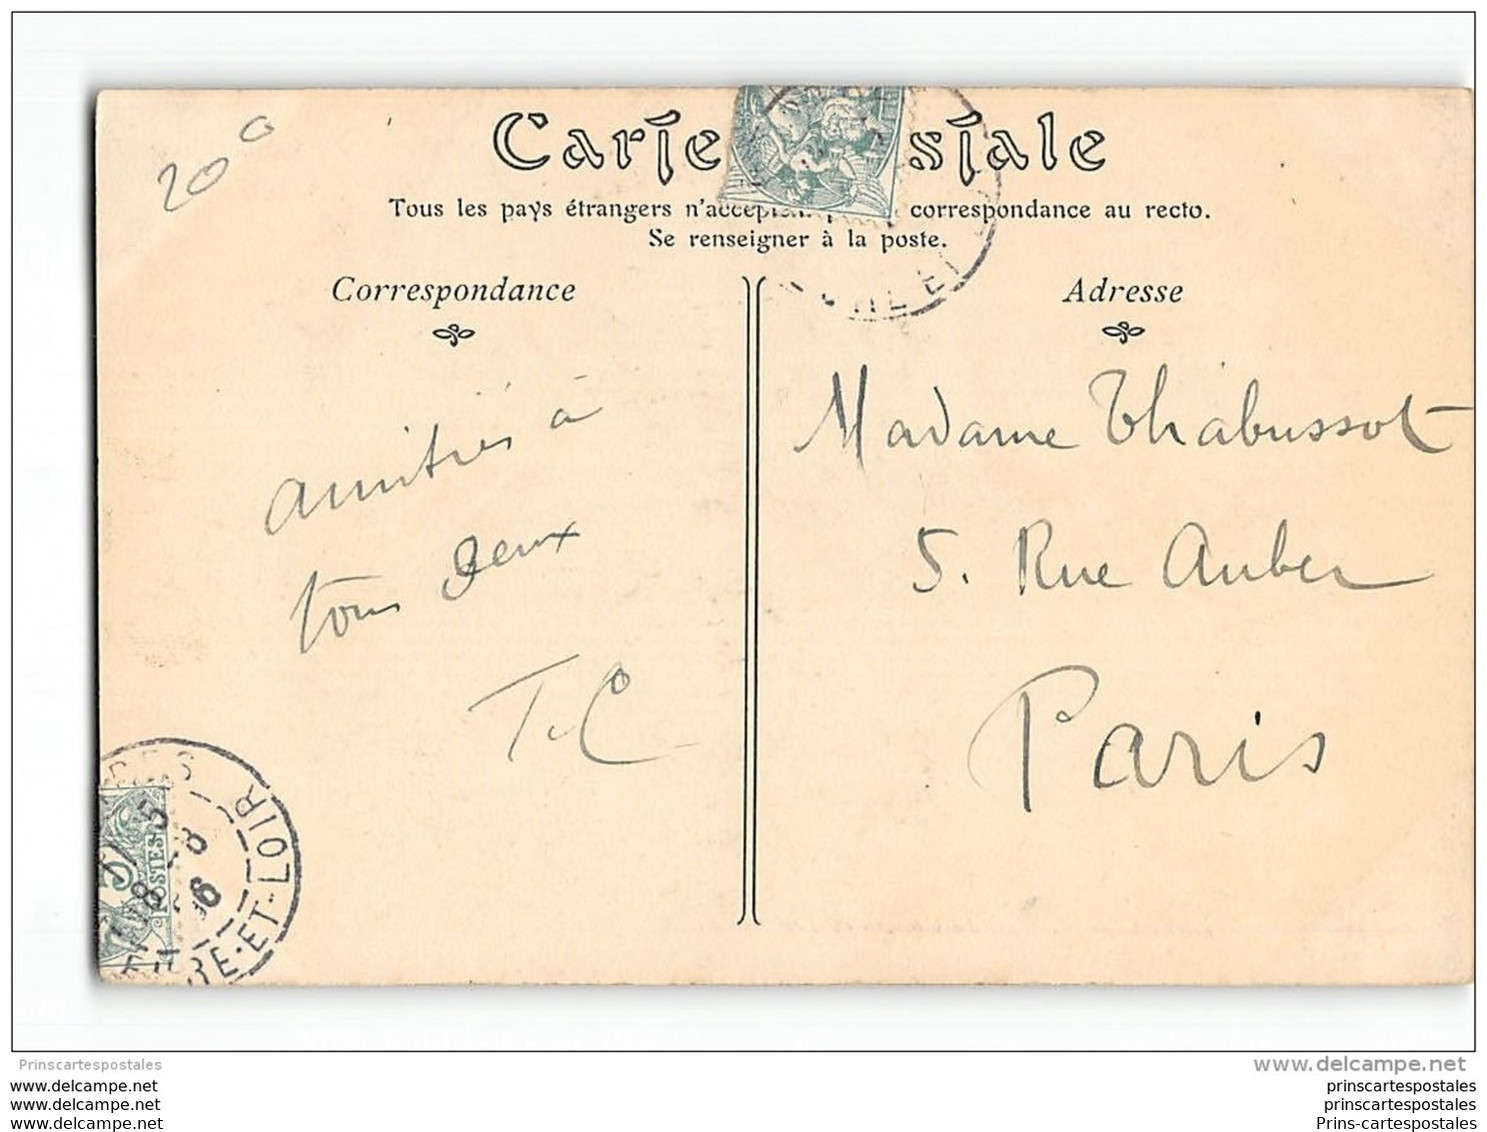 200
Carte Postale
Tous les pays étrangers n'acceptent p correspondance au recto.
Se renseigner à la poste.
Correspondance
Adresse
amitiés à
tous deux
T. C
Madame Thabussot
5. Rue Auber
Paris
POSTES
EURE-ET-LOIR
Prinscartespostales
www.delcampe.net
www.delcampe.net
www.delcampe.net
www.delcampe.net
prinscartespostales
prinscartespostales
Prins-cartespostales